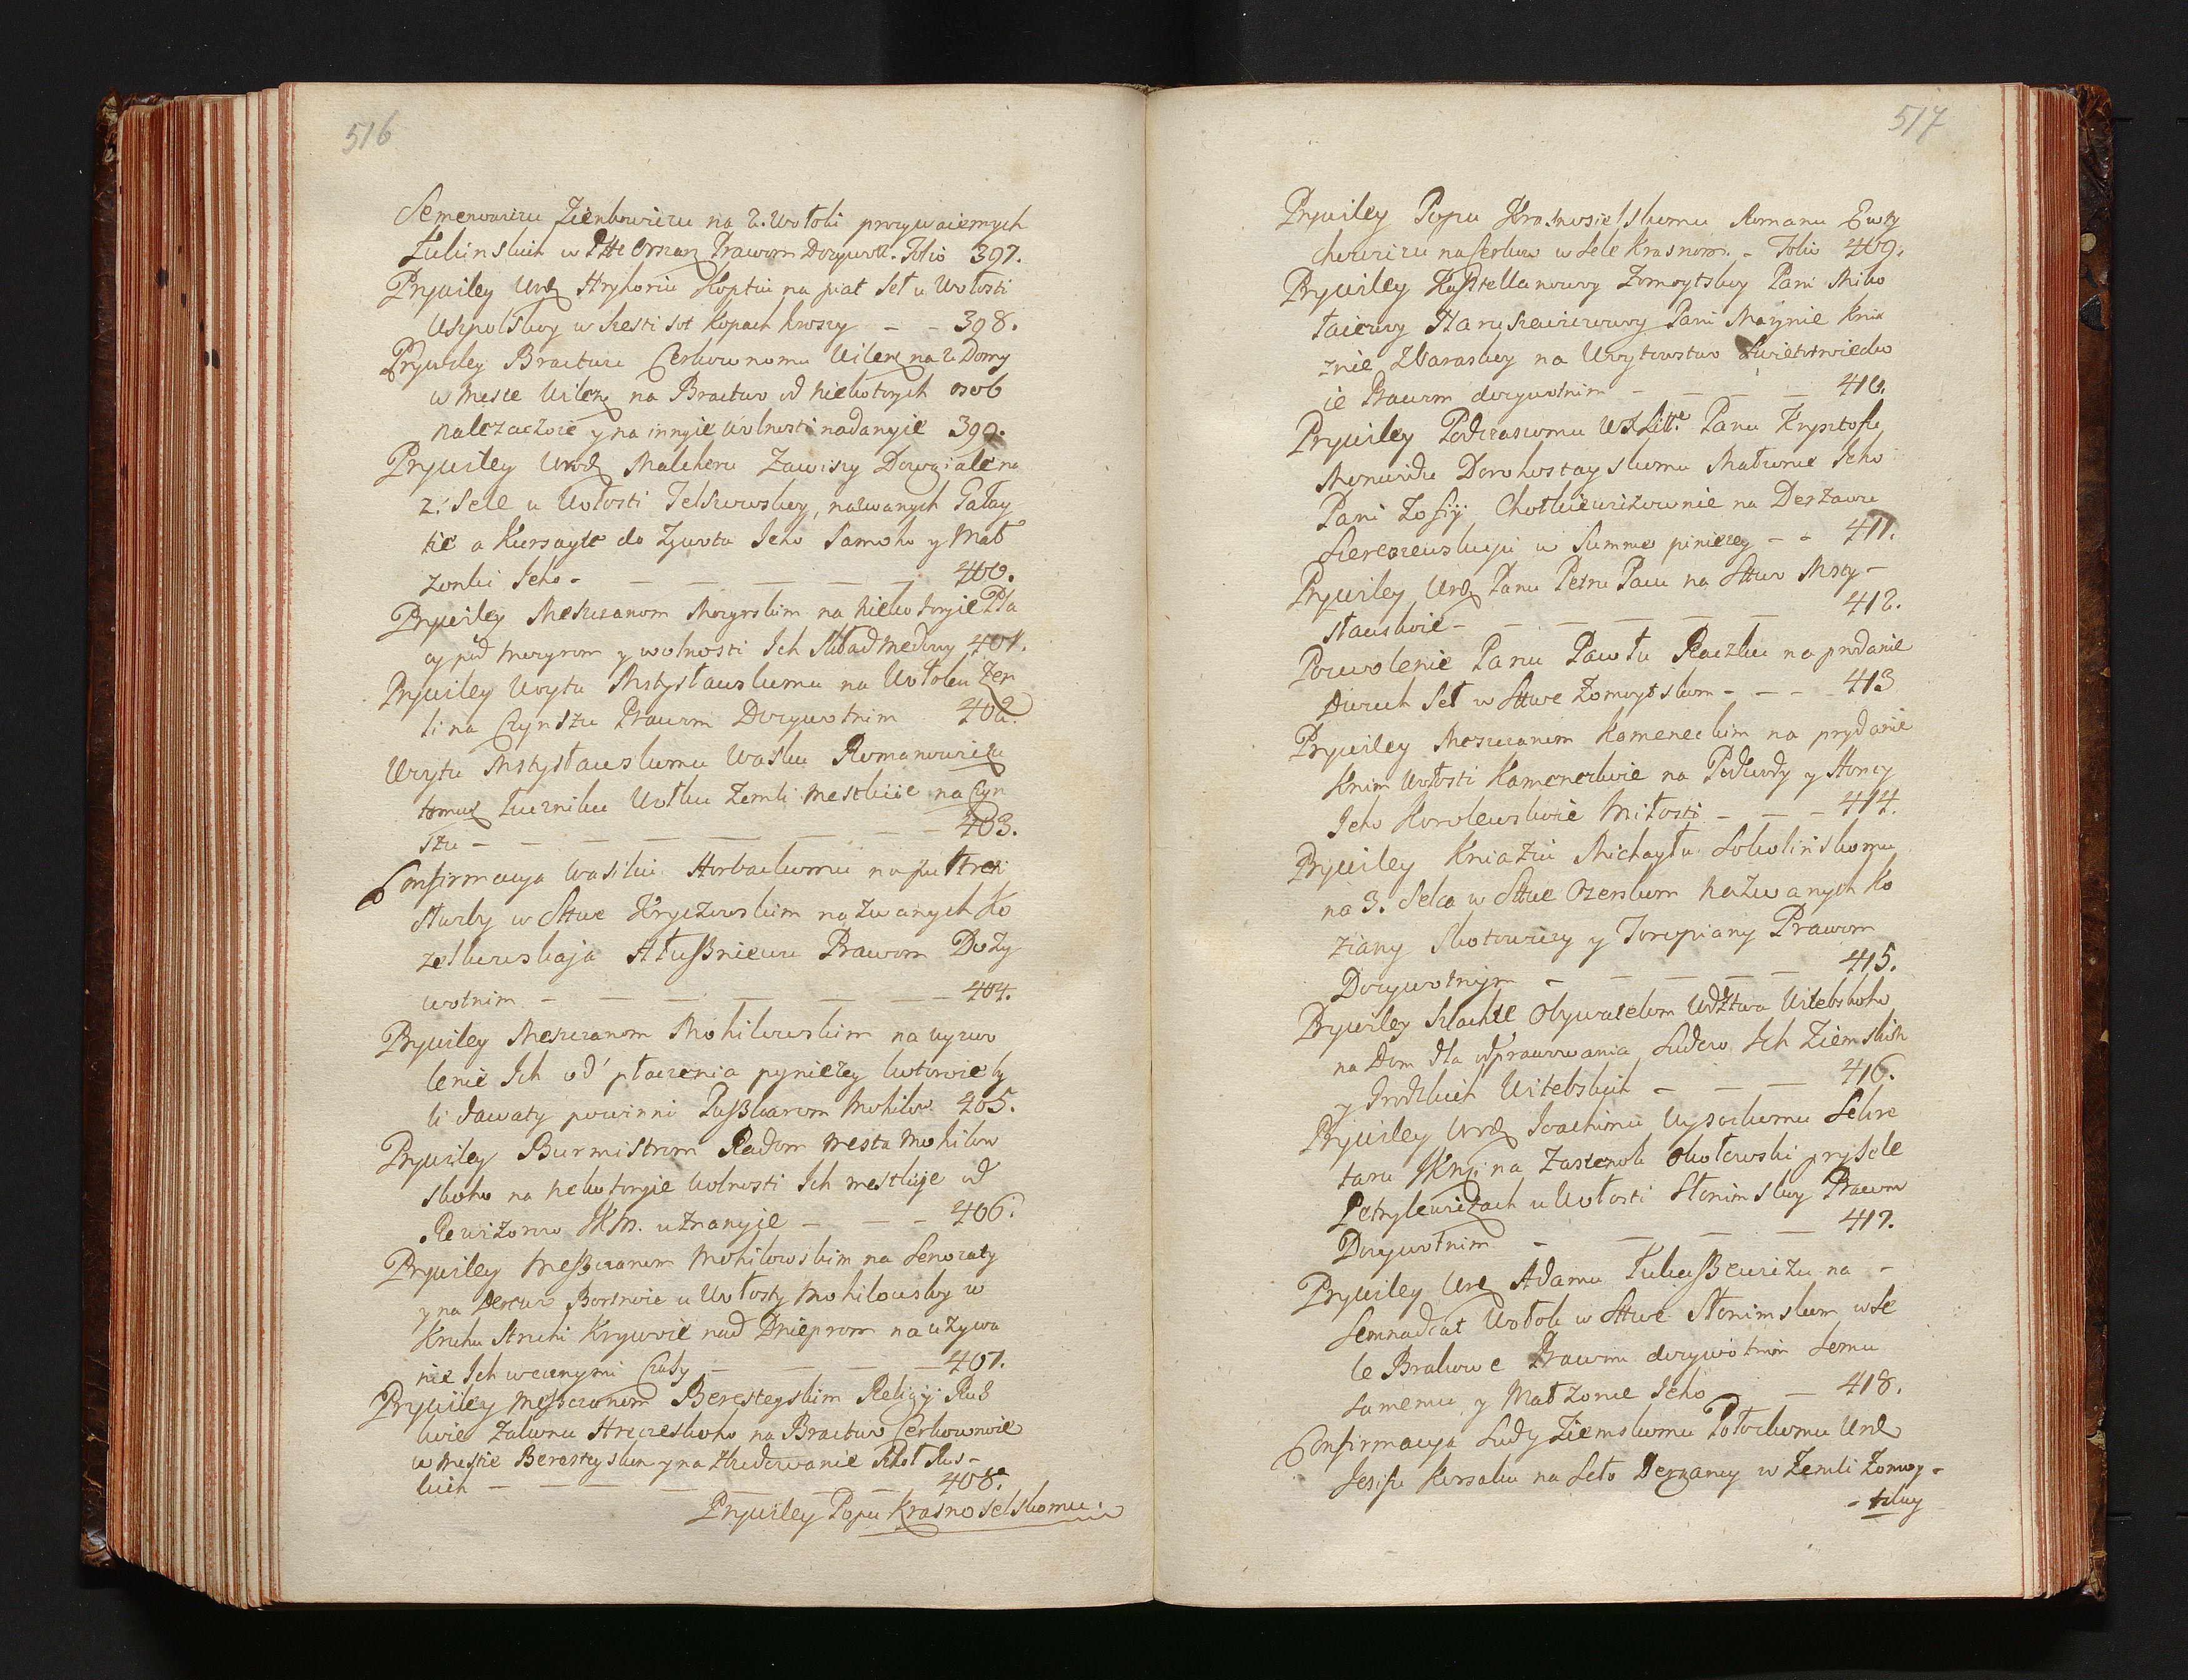 516
Semenowiczu Zienkowiczu na 2. Wołoki prozywaiemych
Łukinskich w Ptte Orszan Prawom Dozywott. Folio 397.
Prywiley Urodz Hryhoriu Koptiu na piat Seł u Wołosti
Uszpolskoy w Szesti sot Kopach hroszy - - 398.
Prywiley Bractwu Cerkownomu Wilen na 2 Domy
w Mestce Wilen na Bractwo od niekotorych osob
należaczoie y na innyie wolnosti nadanyie 399.
Prywiley Urodz Malcheru Zawiszy Dowgiale na
2. Sele u Wołosti Telszowskoy, nazwanych Gałay
tie a Kursayte do Zywota Jeho Samoho y Mał
żonki Jeho - - - - - - 400.
Prywiley Meszczanom Mozyrskim na niekotoryie Pla
cy pod Mozyrom y wolnosti Ich Skład Medowy 401.
Prywiley Woytu Mstysławskomu na Wołoku Zem
li na Czynszu Prawom Dozywotnim 402.
Woytu Mstysławskomu Wasku Romanowiczu
tomuż Łuczniku Wołku Zemli Mestkoie na Czyn
szu - - - - - - - - 403.
Confirmacya Wasilu Horbackomu na pustoszi
służby w Sttwe Kryczowskim nazwanych Ko
zelkowskaja Hłuszniewa Prawom Doży
wotnim - - - - - - - 404.
Prywiley Meszczanom Mohilowskim na wyzwo
lenie Ich od płaczenia pyniezey kotoroie by
li dawaty powinni Puszkarom Mohilow 405.
Prywiley Burmistrom Radom Mesta Mohilow
skoho na nekotoryie Wolnosti Ich mestkije od
Rewizorow JKM. uznanyie - - - 406.
Prywiley Meszczanom Mohilowskim na Senozaty
y na Derewo Bortnoie u Wołosty Mohilowskoy w
Kruhu Struhi Krywoie nad Dnieprom na używa
nie Ich wecznymi Czasy - - - 407.
Prywiley Meszczanom Beresteyskim Religij Rus
koie Zakonu Hreczeskoho na Bractwo Cerkownoie
w Mestie Beresteyskom y na Zbudowanie Szkoł Rus-
kich - - - - - - - 408.
Prywiley Popu Krasnoselskomu.
517
Prywiley Popu Krasnosielskomu Romanu Ewty
chowiczu na Cerkow w Sele Krasnom. - Folio 409.
Prywiley Kasztellanowoy Żomoytskoy Pani Miko
łaiewoy Naruszewiczowoy Pani Marynie Knia
znie Zbarazkoy na Woytowstwo Swietowiedo
ie Prawom dozywotnim - - - - 410.
Prywiley Podczaszomu WXLitt. Panu Krysztofu
Monwidu Dorohostayskomu Małżonce Jeho
Pani Zofiy Chotkiewiczownie na Derżawu
Szereszewskuju w Summe piniezey - - 411.
Prywiley Urodz Panu Petru Pacu na Sttwo Msty-
sławskoie - - - - - - 412.
Pozwolenie Panu Pawłu Raczku na prodanie
Dwuch Seł w Sttwe Żomoytskom - - - 413
Prywiley Meszczanom Kameneckim na prydanie
Knim Wołosti Kameneckoie na Podwody y Honcy
Jeho Korolewskoie Miłosti - - - 414.
Prywiley Kniaziu Michayłu Sokolinskomu
na 3. Selca w Sttwe Ozerskom nazwanych Ko
ziany Skotowicy y Toropiany Prawom
Dozywotnym - - - - - 415.
Prywiley Szlachte Obywatelom Wdztwa Witebskoho
na Dom dla odprawowania Sudow Ich Ziemskich
y Grodzkich Witebskich - - - 416.
Prywiley Urodz Joachimu Wysockomu Sekre
taru JKM na Zastenok Okołowski pry Sele
Petrylewiczach u Wołosti Słonimskoy Prawom
Dozywotnim - - - - 417.
Prywiley Urodz Adamu Łukaszewiczu na -
Semnadcat Wołok w Sttwe Słonimskom w Se
le Brakowe Prawom dozywotnim Jemu
samemu y Małżonce Jeho - - 418.
Confirmacya Sudy Ziemskomu Połockomu Urodz
Jesifu Korsaku na Seło Derzancy w Zemli Żomoy-
-tskoy